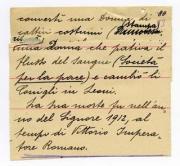 convertì una donna di
cattivi costumi (Stampa)
una donna che pativa il
flusso del sangue (Società
per la pace) e cambiò li
Conigli in Leoni.
Fu fatta morta fu nell'an-
no del Signore 1912, al
tempo di Vittorio Impera-
tore Romano.